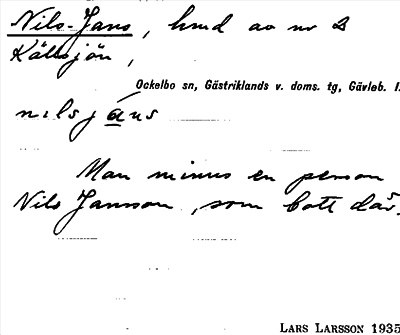 Nils-Jans, hmd av nr 2
Källsjön,
Ockelbo sn, Gästriklands v. doms. tg, Gävleb. l.
nilsjáns
Man minns en person
Nils Jansson, som bott där.
LARS LARSSON 1935